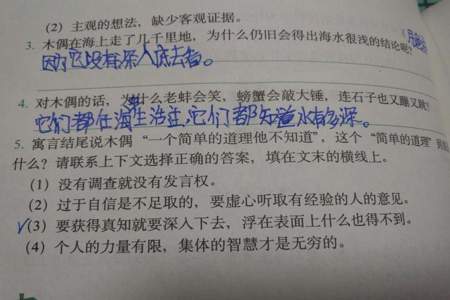 (2) 主观的想法，缺少客观证据。
3. 木偶在海上走了几千里地，为什么仍旧会得出海水很浅的结论呢?
因为它没有深入底去看。
4. 对木偶的话，为什么老蚌会笑，螃蟹会敲大锤，连石子也又蹦又跳?
它们都在海里生活,它们都知道水有多深。
5. 寓言结尾说木偶“一个简单的道理他不知道”，这个“简单的道理”
什么？请联系上下文选择正确的答案，填在文末的横线上。
(1) 没有调查就没有发言权。
(2) 过于自信是不足取的，要虚心听取有经验的人的意见。
√(3) 要获得真知就要深入下去，浮在表面上什么也得不到。
(4) 个人的力量有限，集体的智慧才是无穷的。